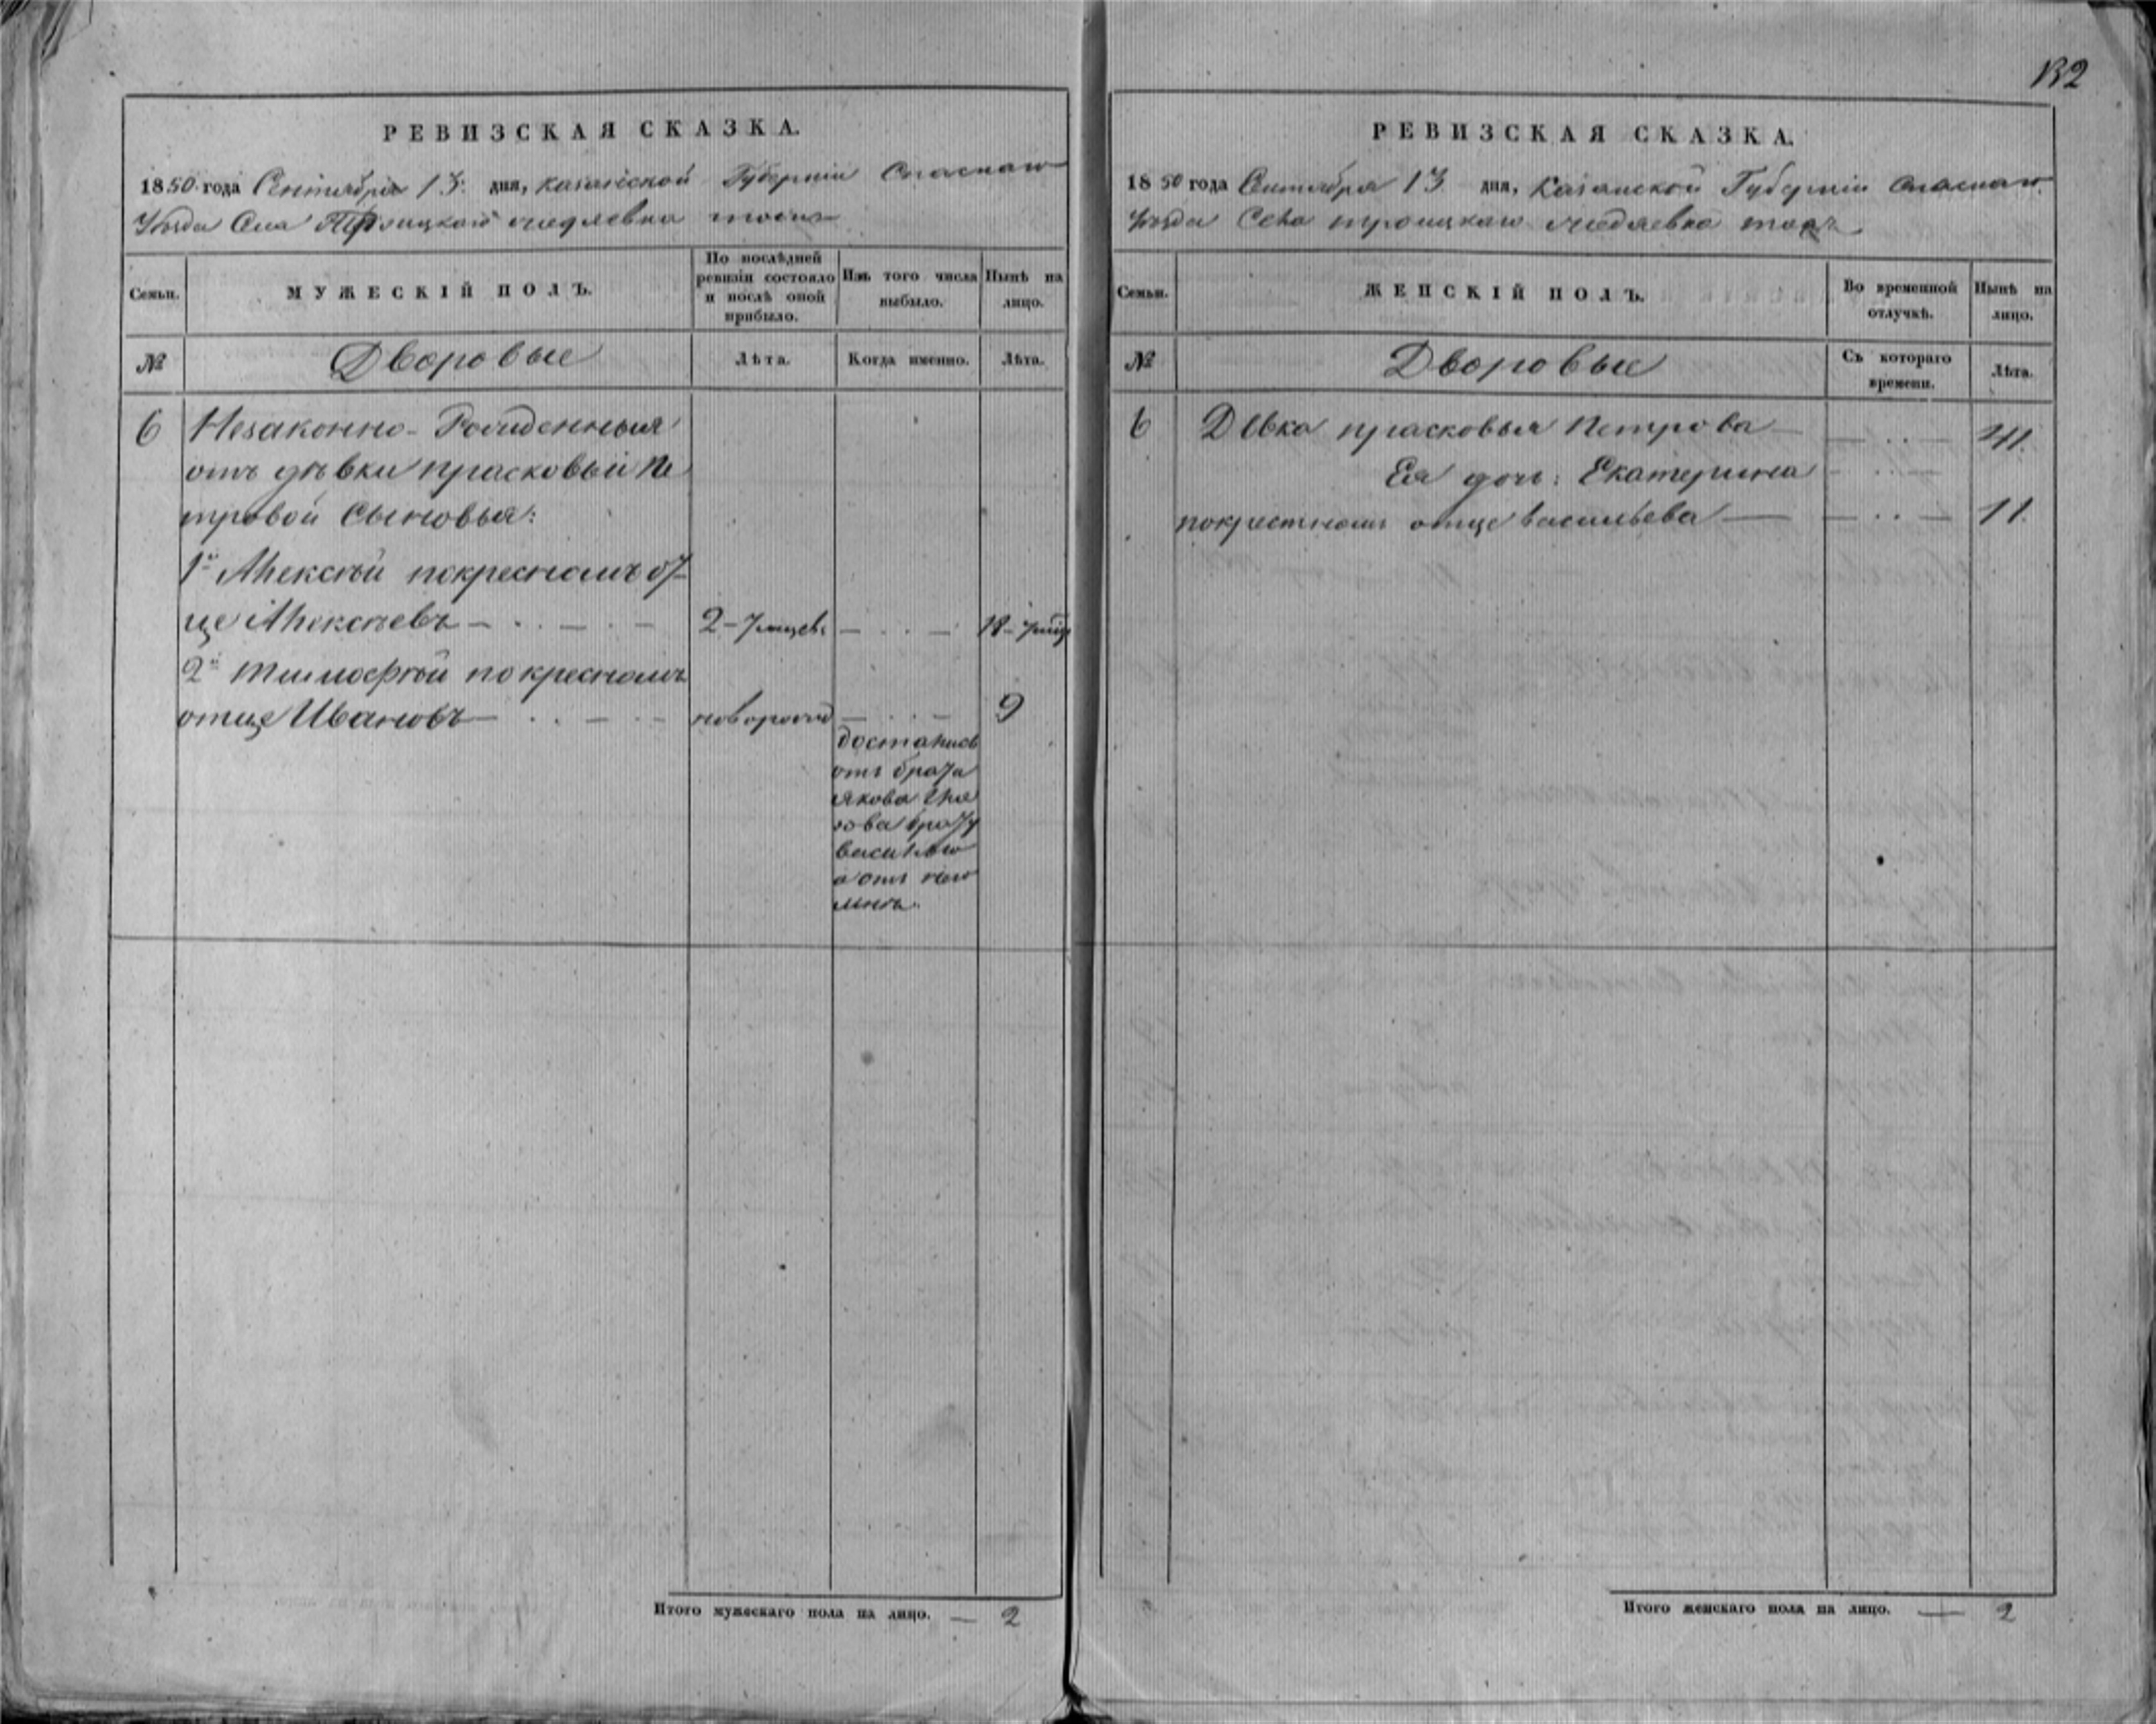 132
РЕВИЗСКАЯ СКАЗКА.
1850 года Сентября 13 дня, Казанской Губерніи Спаскаго
Уѣзда Села Троицкаго
Семьи.
МУЖЕСКІЙ ПОЛЪ.
По послѣдней ревизіи состояло и послѣ оной прибыло.
Изъ того числа выбыло.
Нынѣ на лицо.
№
Дворовые
Лѣта.
Когда именно.
Лѣта.
6
Незаконно-Рожденныя
отъ дѣвки прасковьи Пе
тровой Сыновья:
1й Алексѣй покресномъ от
це Алексѣевъ
2-7 мцевъ
18-7 мцъ
2й Тимофѣй покресномъ
отце Ивановъ
новорожд
9
достались
отъ брата
якова
брату
василью
а отъ него
мнѣ.
Итого мужескаго пола на лицо. — 2
РЕВИЗСКАЯ СКАЗКА.
1850 года Сентября 13 дня, Казанской Губерніи Спаскаго
Уѣзда Села троицкаго
Семьи.
ЖЕНСКІЙ ПОЛЪ.
Во временной отлучкѣ.
Нынѣ на лицо.
№
Дворовые
Съ котораго времени.
Лѣта.
6
Дѣвка прасковья Петрова
41.
Ея дочь: Екатерина
покрестномъ отце васильева
11.
Итого женскаго пола на лицо. — 2